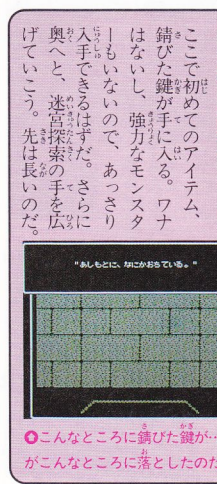 ここで初めてのアイテム、
錆びた鍵が手に入る。ワナ
はないし、強力なモンスタ
ーもいないので、あっさり
入手できるはずだ。さらに
奥へと、迷宮探索の手を広
げていこう。先は長いのだ。
"あしもとに、なにかおちている。"
こんなところに錆びた鍵が…
がこんなところに落としたのた